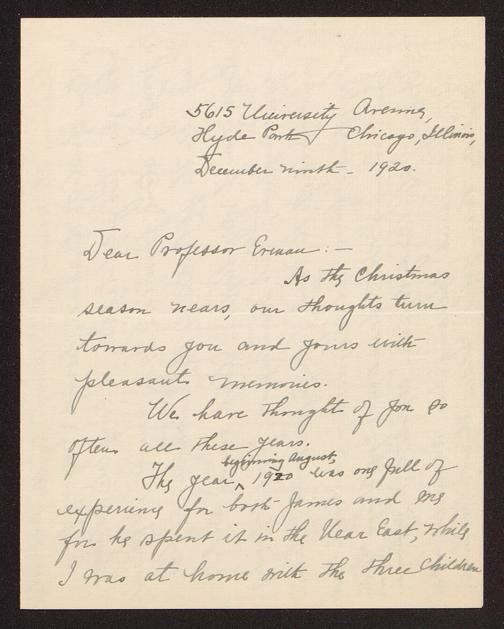 5615 University Avenue,
Hyde Park Chicago, Illinois,
December ninth - 1920.
Dear Professor Erman: -
As the Christmas
season nears, our thoughts turn
towards you and yours with
pleasant memories.
We have thought of you so
often all these years.
beginning August
The year, ^ 1920 was one full of
experience for both James and me
for he spent it in the Near East, while
I was at home with the three children